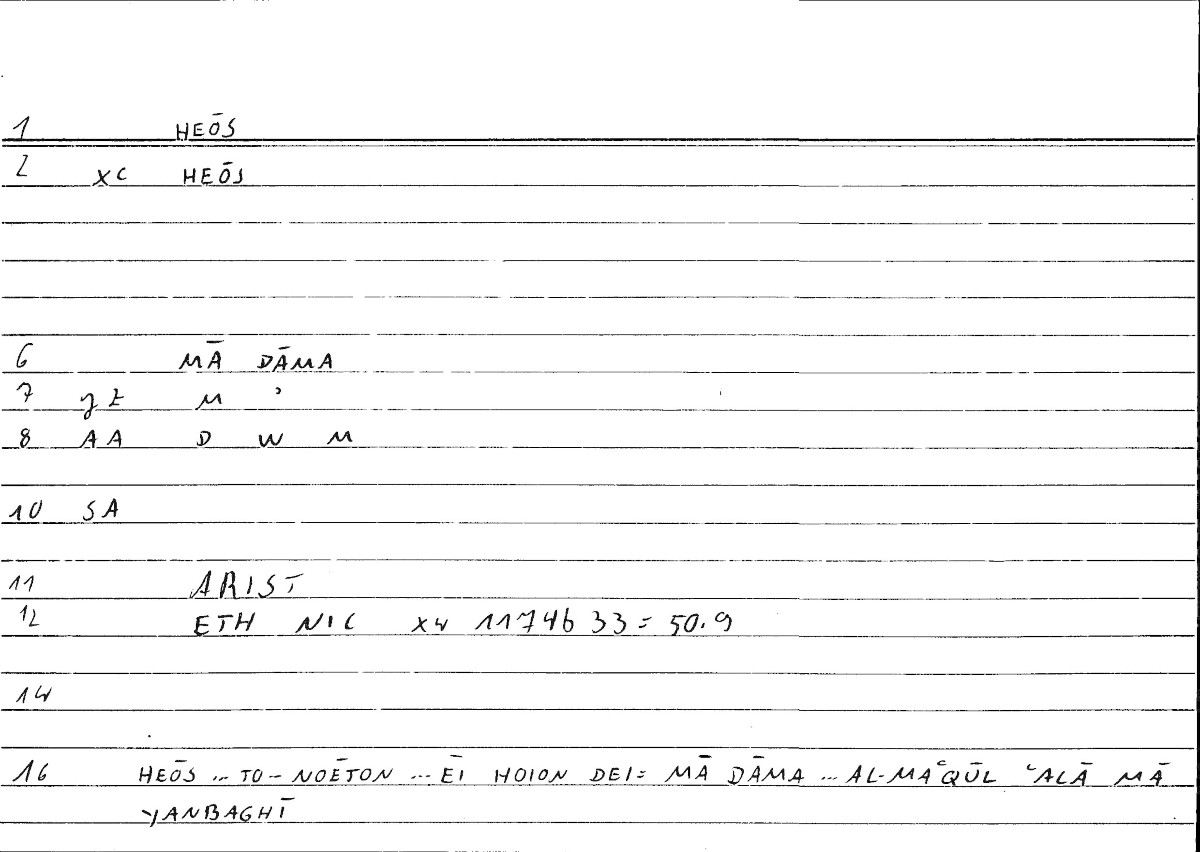 1 HEŌS
2 XC HEŌS
6 MĀ DĀMA
7 M ʾ
8 AA D W M
10 SA
11 ARIST
12 ETH NIC X4 1174b 33 = 50.9
14
16 HEŌS ... TO-NOĒTON ... ĒI HOION DEI = MĀ DĀMA ... AL-MAʿQŪL ʿALĀ MĀ
YANBAGHĪ